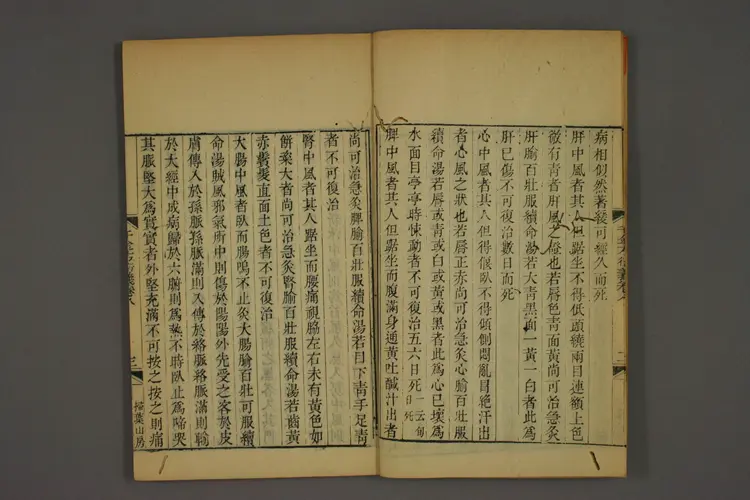 病相似然著緩可經久而死
肝中風者其人但踞坐不得低頭繞兩目連額上色
微有青者肝風之證也若唇色青面黃尚可治急灸
肝腧百壯服續命湯若大青黑面一黃一白者此為
肝已傷不可復治數日而死
心中風者其人但得偃臥不得傾側悶亂冒絕汗出
者心風之狀也若唇正赤尚可治急灸心腧百壯服
續命湯若唇或青或白或黃或黑者此為心已壞為
水面目亭亭時悚動者不可復治五六日死一云旬日死
脾中風者其人但踞坐而腹滿身通黃吐鹹汁出者
尚可治急灸脾腧百壯服續命湯若目下青手足青
者不可復治
腎中風者其人踞坐而腰痛視脇左右未有黃色如
餅粢大者尚可治急灸腎腧百壯服續命湯若齒黃
赤鬢髮直面土色者不可復治
大腸中風者臥而腸鳴不止灸大腸腧百壯可服續
命湯賊風邪氣所中則傷於陽陽外先受之客於皮
膚傳入於孫脈孫脈滿則入傳於絡脈絡脈滿則輸
於大經中成病歸於六腑則為熱不時臥止為啼哭
其脈堅大為實實者外堅充滿不可按之按之則痛
千金方衍義卷八
三
掃葉山房